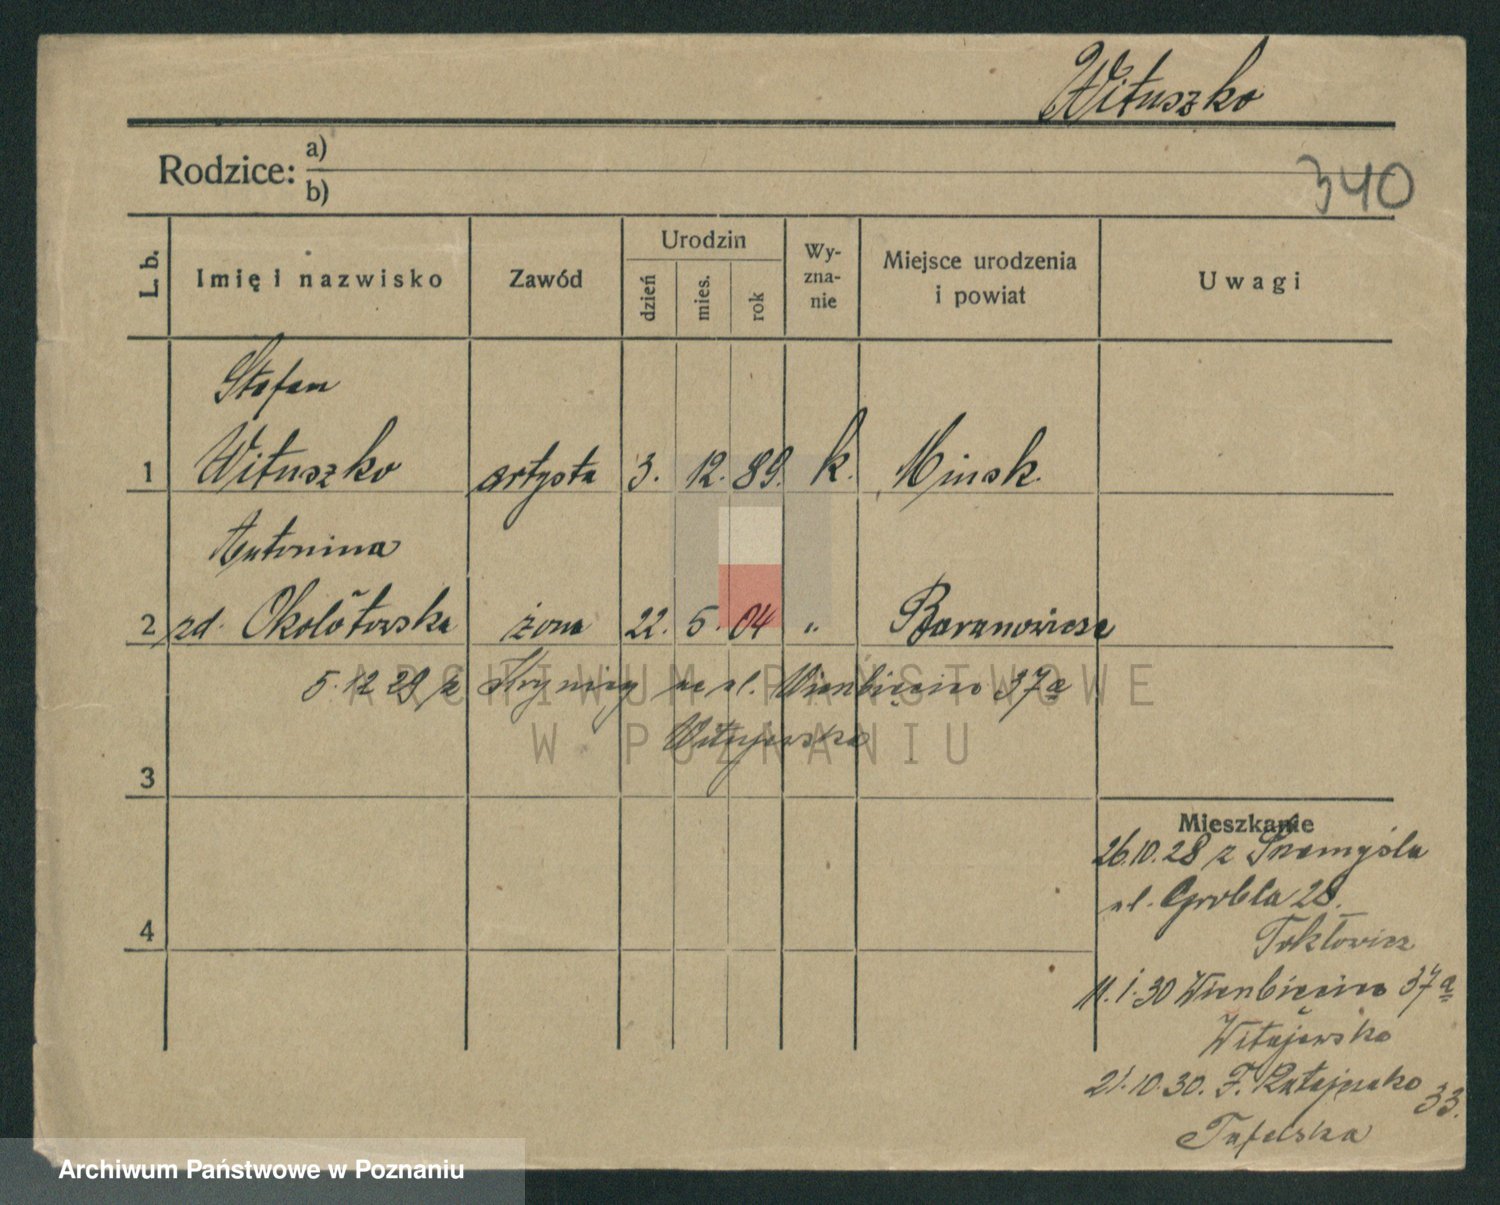 Wituszko
340
Rodzice: a)
b)
L. b.
Imię i nazwisko
Zawód
Urodzin
dzień
mies.
rok
Wy-
zna-
nie
Miejsce urodzenia
i powiat
Uwagi
Stefan
1 Wituszko artysta 3. 12. 89. k. Mińsk.
Antonina
2 zd. Okołotowska żona 22. 5. 04 " Baranowicze
5. 12 29 z Krynicy na ul. 37a
Witajewska
ARCHIWUM PAŃSTWOWE
W POZNANIU
3
4
Mieszkanie
26.10.28 z Przemyśla
ul. Grobla 28.
11. 1. 30 37a
Witajewska
21.10.30. F. Ratajczaka 33.
Archiwum Państwowe w Poznaniu